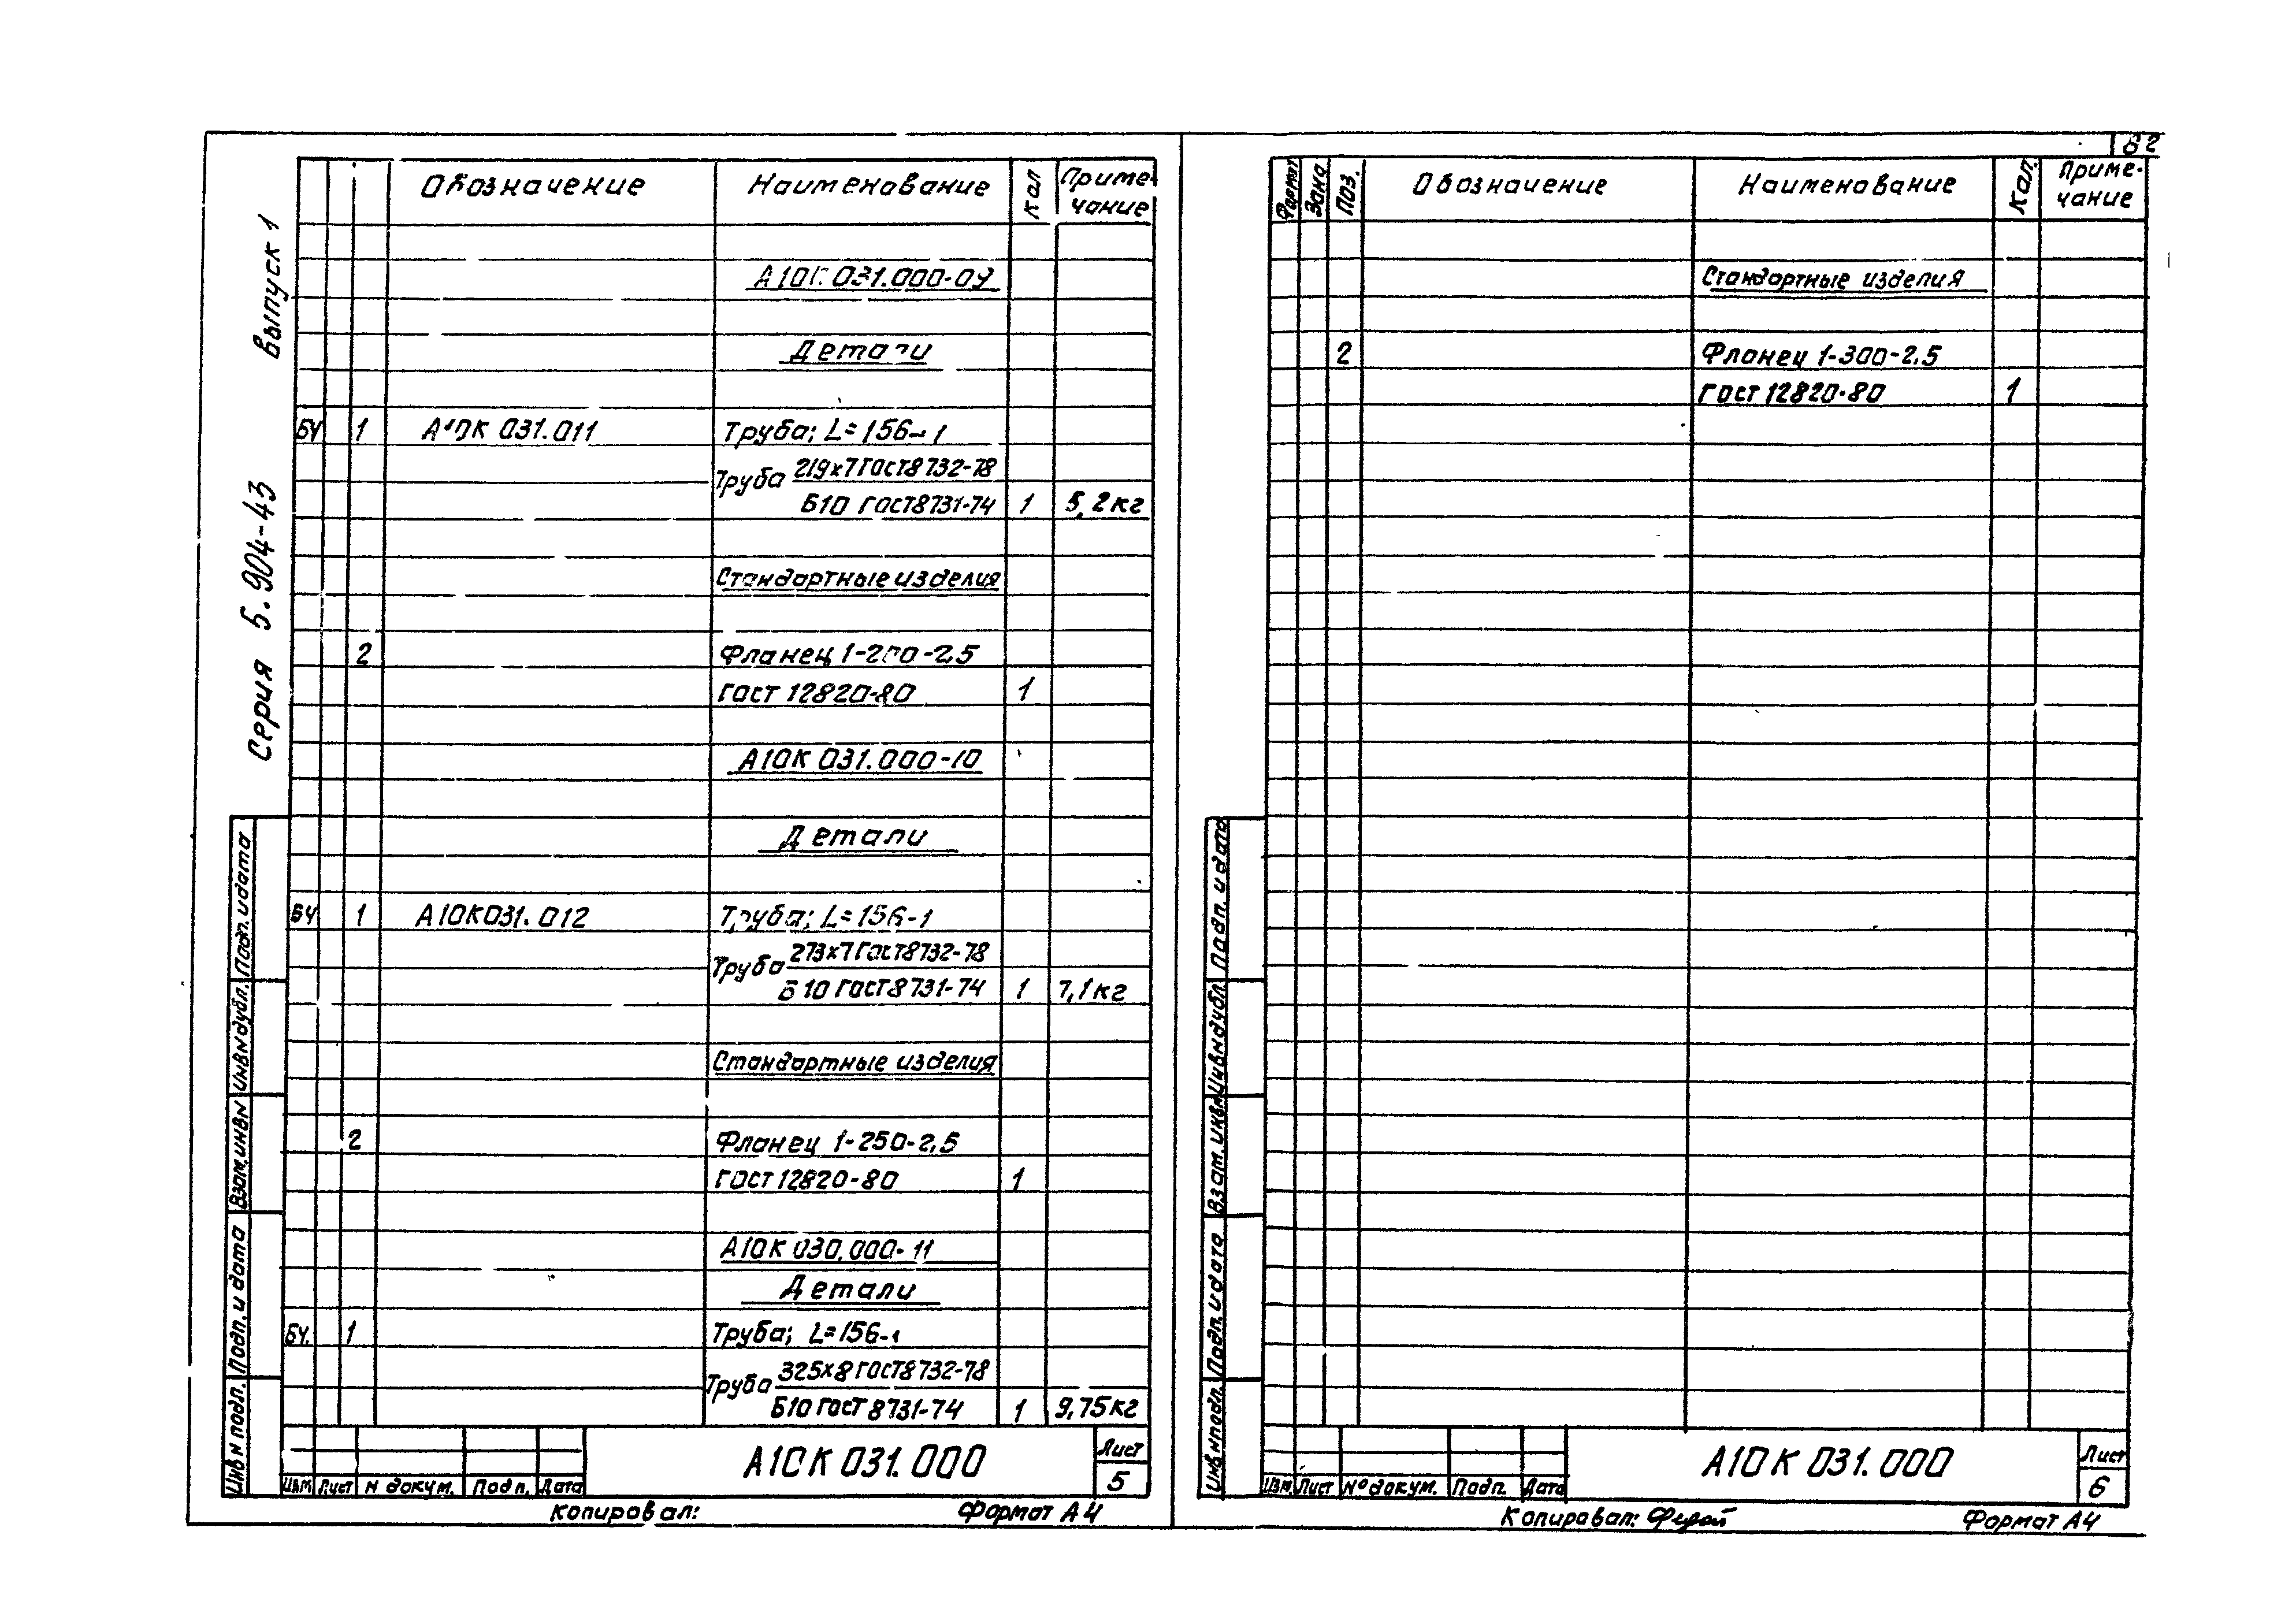 82
Серия 5.904-43 Выпуск 1
Обозначение Наименование Кол Приме-
чание
А10К 031.000-09
Детали
БЧ 1 А10К 031.011 Труба; L=156-1
Труба 219х7 ГОСТ 8732-78
Б10 ГОСТ 8731-74 1 5,2кг
Стандартные изделия
2 Фланец 1-200-2,5
ГОСТ 12820-80 1
А10К 031.000-10
Детали
БЧ 1 А10К031.012 Труба; L=156-1
Труба 273х7 ГОСТ 8732-78
Б10 ГОСТ 8731-74 1 7,1кг
Стандартные изделия
2 Фланец 1-250-2,5
ГОСТ 12820-80 1
А10К 030.000-11
Детали
БЧ. 1 Труба; L=156-1
Труба 325х8 ГОСТ 8732-78
Б10 ГОСТ 8731-74 1 9,75кг
Подп. и дата
Инв N дубл.
Взам. инв N
Подп. и дата
Инв N подл.
Изм Лист N докум. Подп. Дата
А10К 031.000
Лист
5
Копировал: Формат А4
Формат Зона Поз. Обозначение Наименование Кол. Приме-
чание
Стандартные изделия
2 Фланец 1-300-2,5
ГОСТ 12820-80 1
Подп. и дата
Инв N дубл.
Взам. инв N
Подп. и дата
Инв N подл.
Изм. Лист № докум. Подп. Дата
А10К 031.000
Лист
6
Копировал: Формат А4